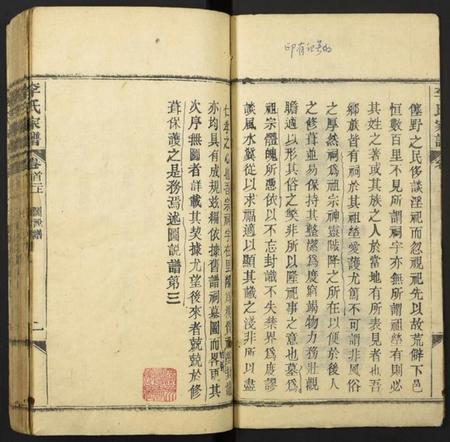 印有记号的
僿野之民侈談淫祀而忽視祀先以故荒僻下邑
恒數百里不見所謂祠宇亦無所謂祖塋有則必
其姓之著或其族之人於當地有所表見者也吾
鄉族皆有祠於其祖塋愛護尤篤不可謂非風俗
之厚然祠爲祖宗神靈陟降之所在以便於後人
之修葺並易保持其整潔爲度窮竭物力務壯觀
瞻適以形其俗之獘非所以隆祀事之意也墓爲
祖宗體魄所憑依以不忘封識不失禁界爲度謬
談風水冀從以求福適以顯其識之淺非所以盡
仁孝之心也吾宗祠宇在
亦均具有成規兹編依據舊譜祠墓圖而畧更其
次序無圖者詳載其契據尤望後來者兢兢於修
葺保護之是務焉述圖說譜第三
李氏家譜
卷首三
圖說譜
一